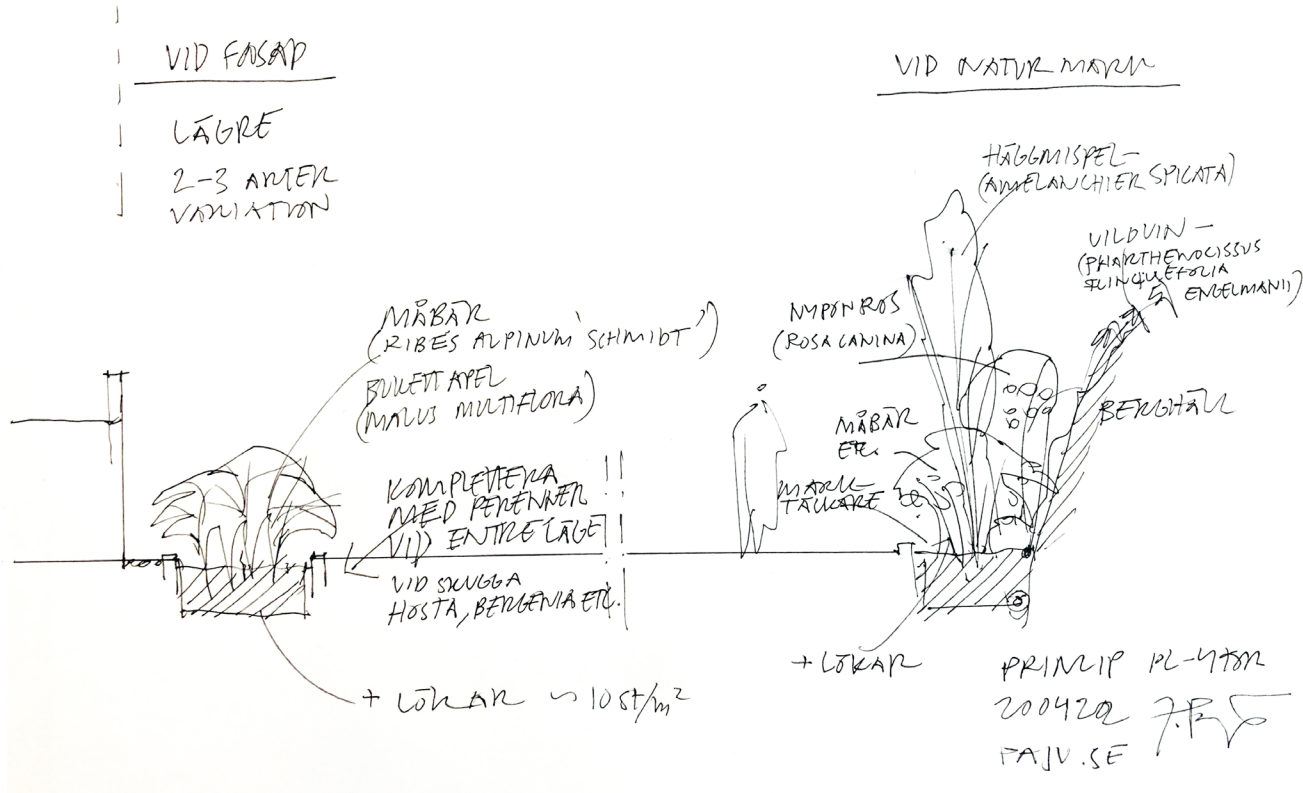 VID FASAD
LÄGRE
2-3 ARTER
VARIATION
MÅBÄR
(RIBES ALPINUM 'SCHMIDT')
BUKETTAPEL
(MALUS MULTIFLORA)
KOMPLETTERA
MED PERENNER
VID ENTRELÄGE
VID SKUGGA
HOSTA, BERGENIA ETC.
+ LÖKAR ~ 10 ST/m²
VID NATURMARK
HÄGGMISPEL-
(AMELANCHIER SPICATA)
VILDVIN -
(PHARTHENOCISSUS
QUINQUEFOLIA
ENGELMANII)
NYPONROS
(ROSA CANINA)
BERGHÄLL
MÅBÄR
ETC.
MARK-
TÄCKARE
+ LÖKAR
PRINCIP PL-YTOR
200422
PAJV.SE